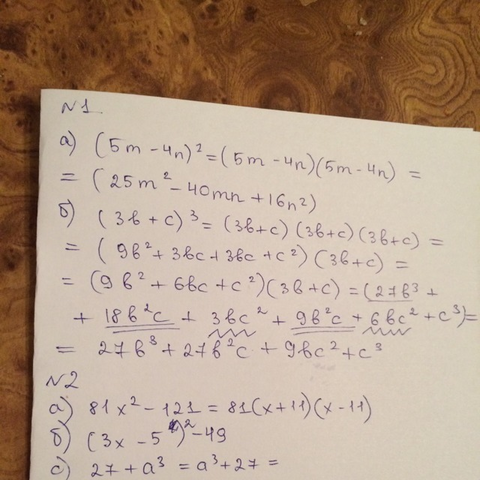 №1
а) (5m - 4n)² = (5m - 4n)(5m - 4n) =
= (25m² - 40mn + 16n²)
б) (3b + c)³ = (3b + c)(3b + c)(3b + c) =
= (9b² + 3bc + 3bc + c²)(3b + c) =
= (9b² + 6bc + c²)(3b + c) = (27b³ +
+ 18b²c + 3bc² + 9b²c + 6bc² + c³) =
= 27b³ + 27b²c + 9bc² + c³
№2
а) 81x² - 121 = 81(x + 11)(x - 11)
б) (3x - 5)² - 49
с) 27 + a³ = a³ + 27 =